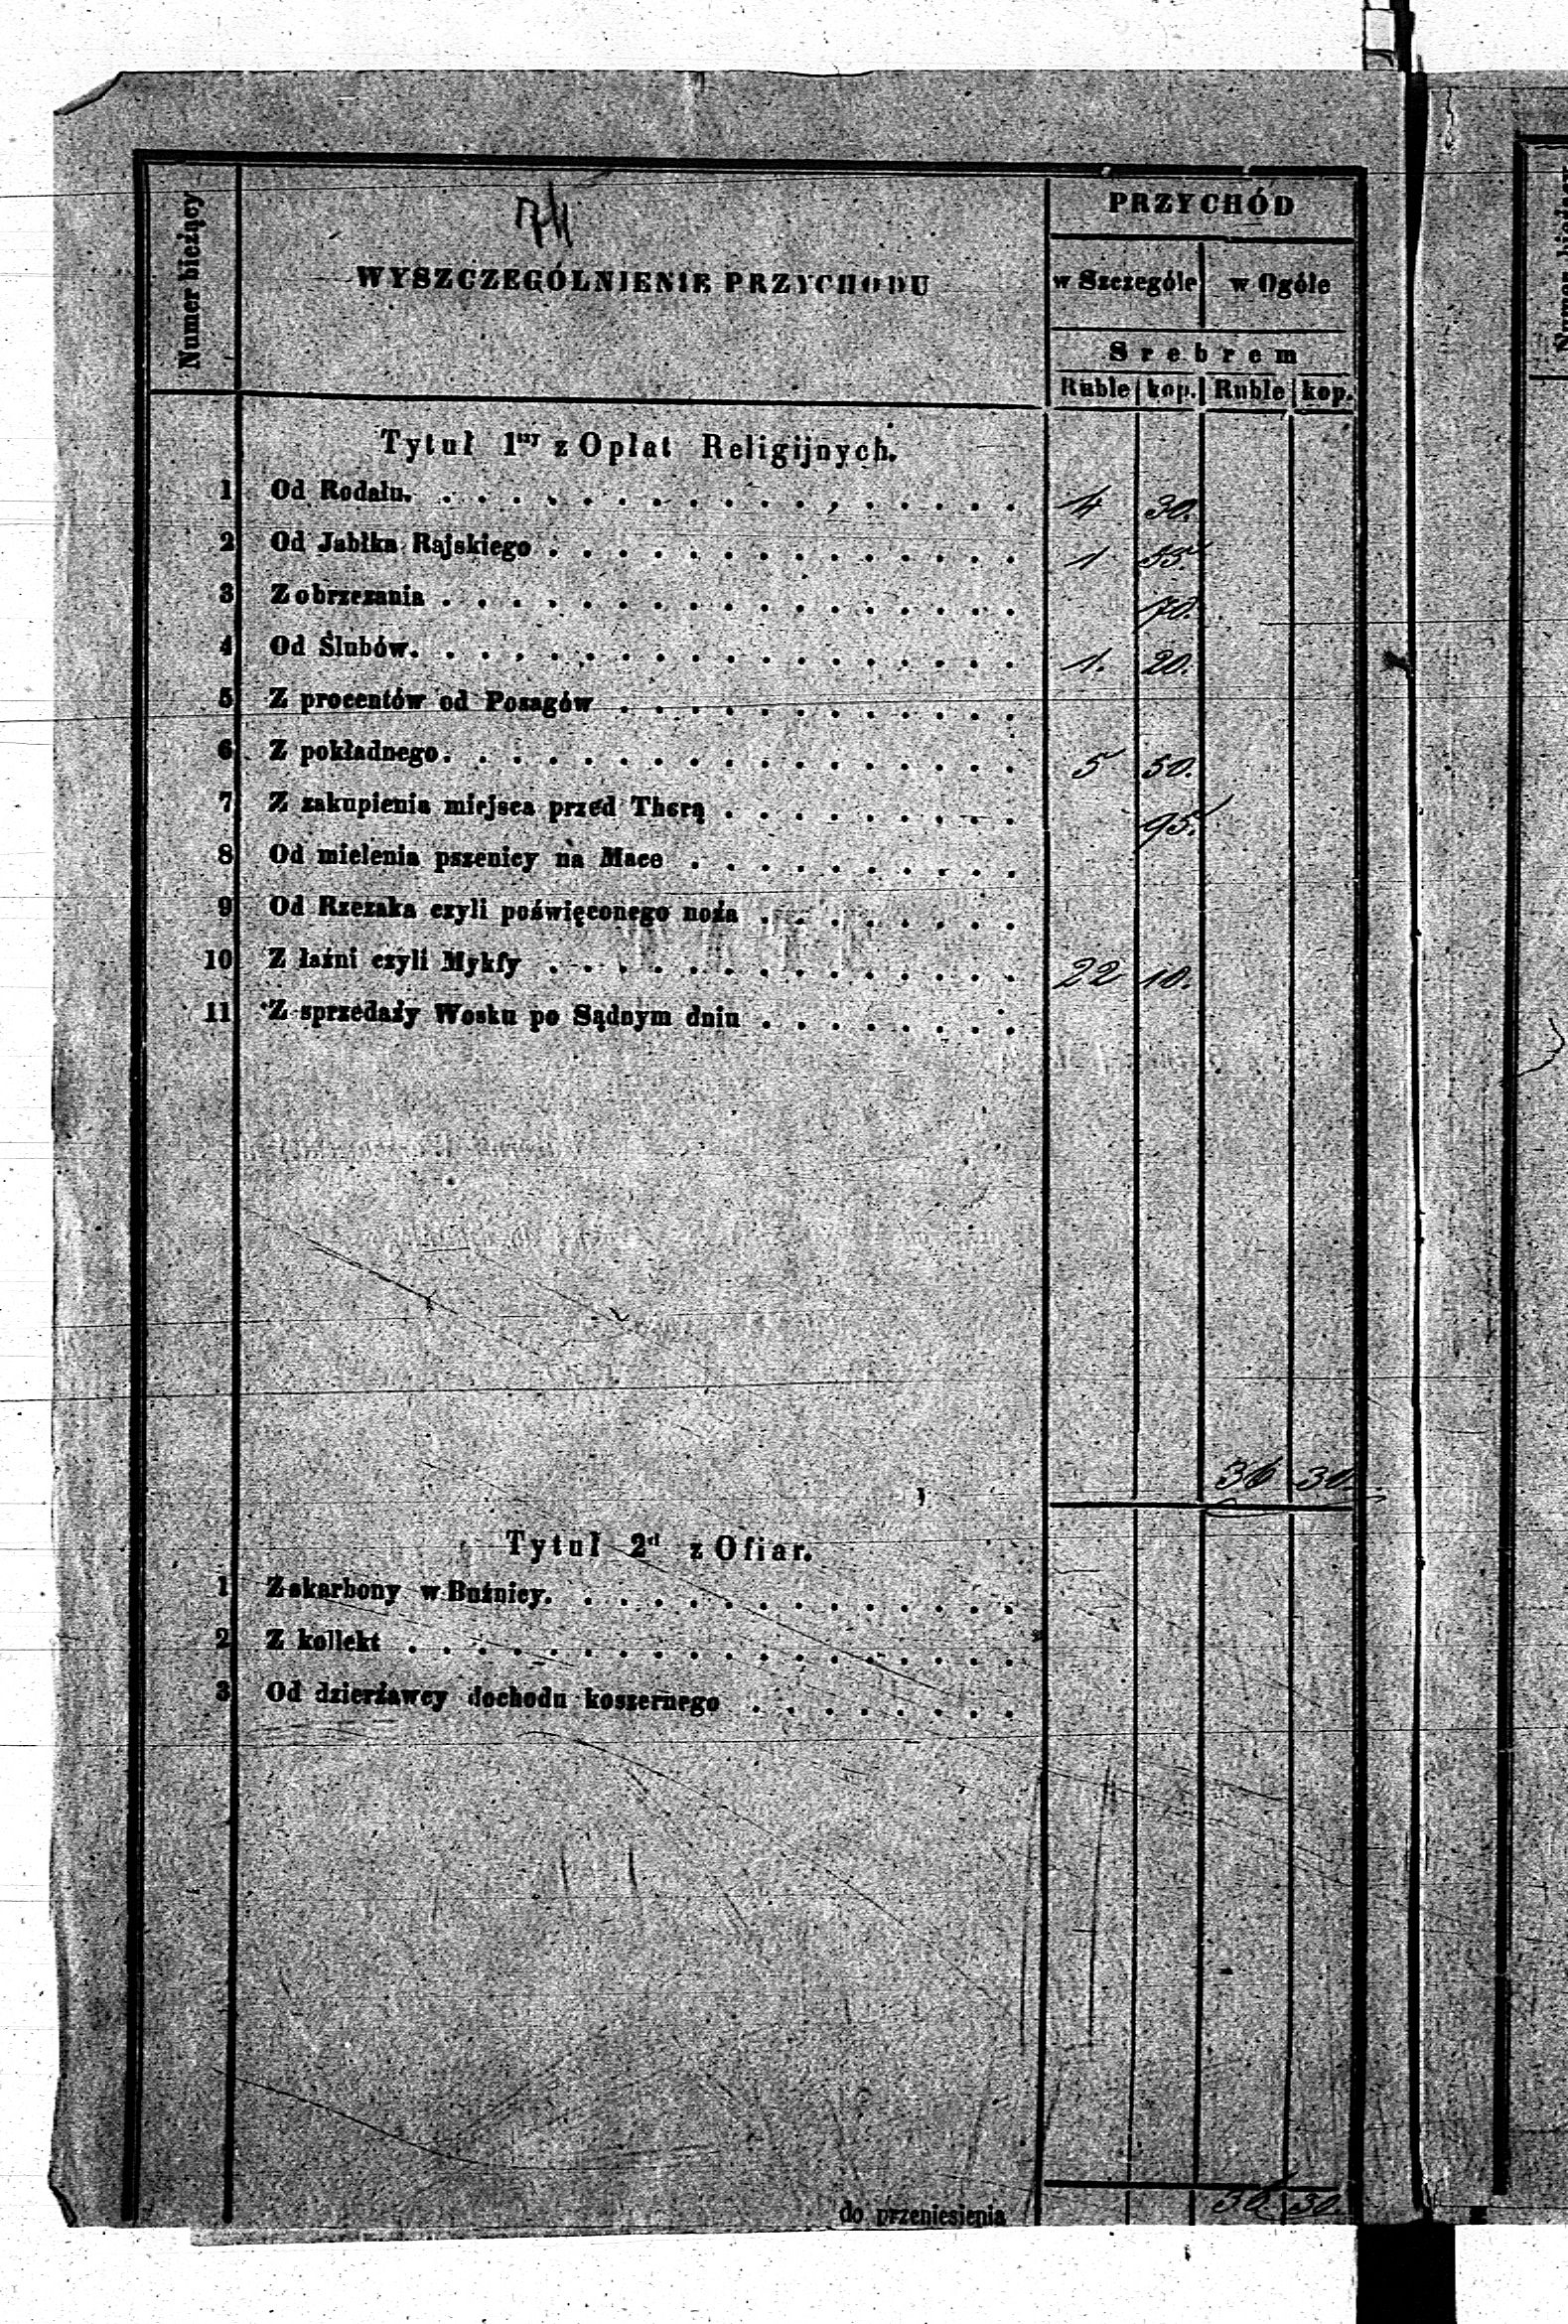 74
Numer bieżący
WYSZCZEGÓLNIENIE PRZYCHODU
PRZYCHÓD
w Szczególe w Ogóle
Srebrem
Ruble kop. Ruble kop.
Tytuł 1ny z Opłat Religijnych.
1 Od Rodału. 4 30.
2 Od Jabłka Rajskiego 1 55.
3 Z obrzezania 70.
4 Od Ślubów. 1. 20.
5 Z procentów od Posagów
6 Z pokładnego. 5 50.
7 Z zakupienia miejsca przed Thorą 95.
8 Od mielenia pszenicy na Mace
9 Od Rzezaka czyli poświęconego noża
10 Z łaźni czyli Mykfy 22 10.
11 Z sprzedaży Wosku po Sądnym dniu
36 30.
Tytuł 2gi z Ofiar.
1 Z skarbony w Buźnicy.
2 Z kollekt
3 Od dzierżawcy dochodu koszernego
do przeniesienia 36 30